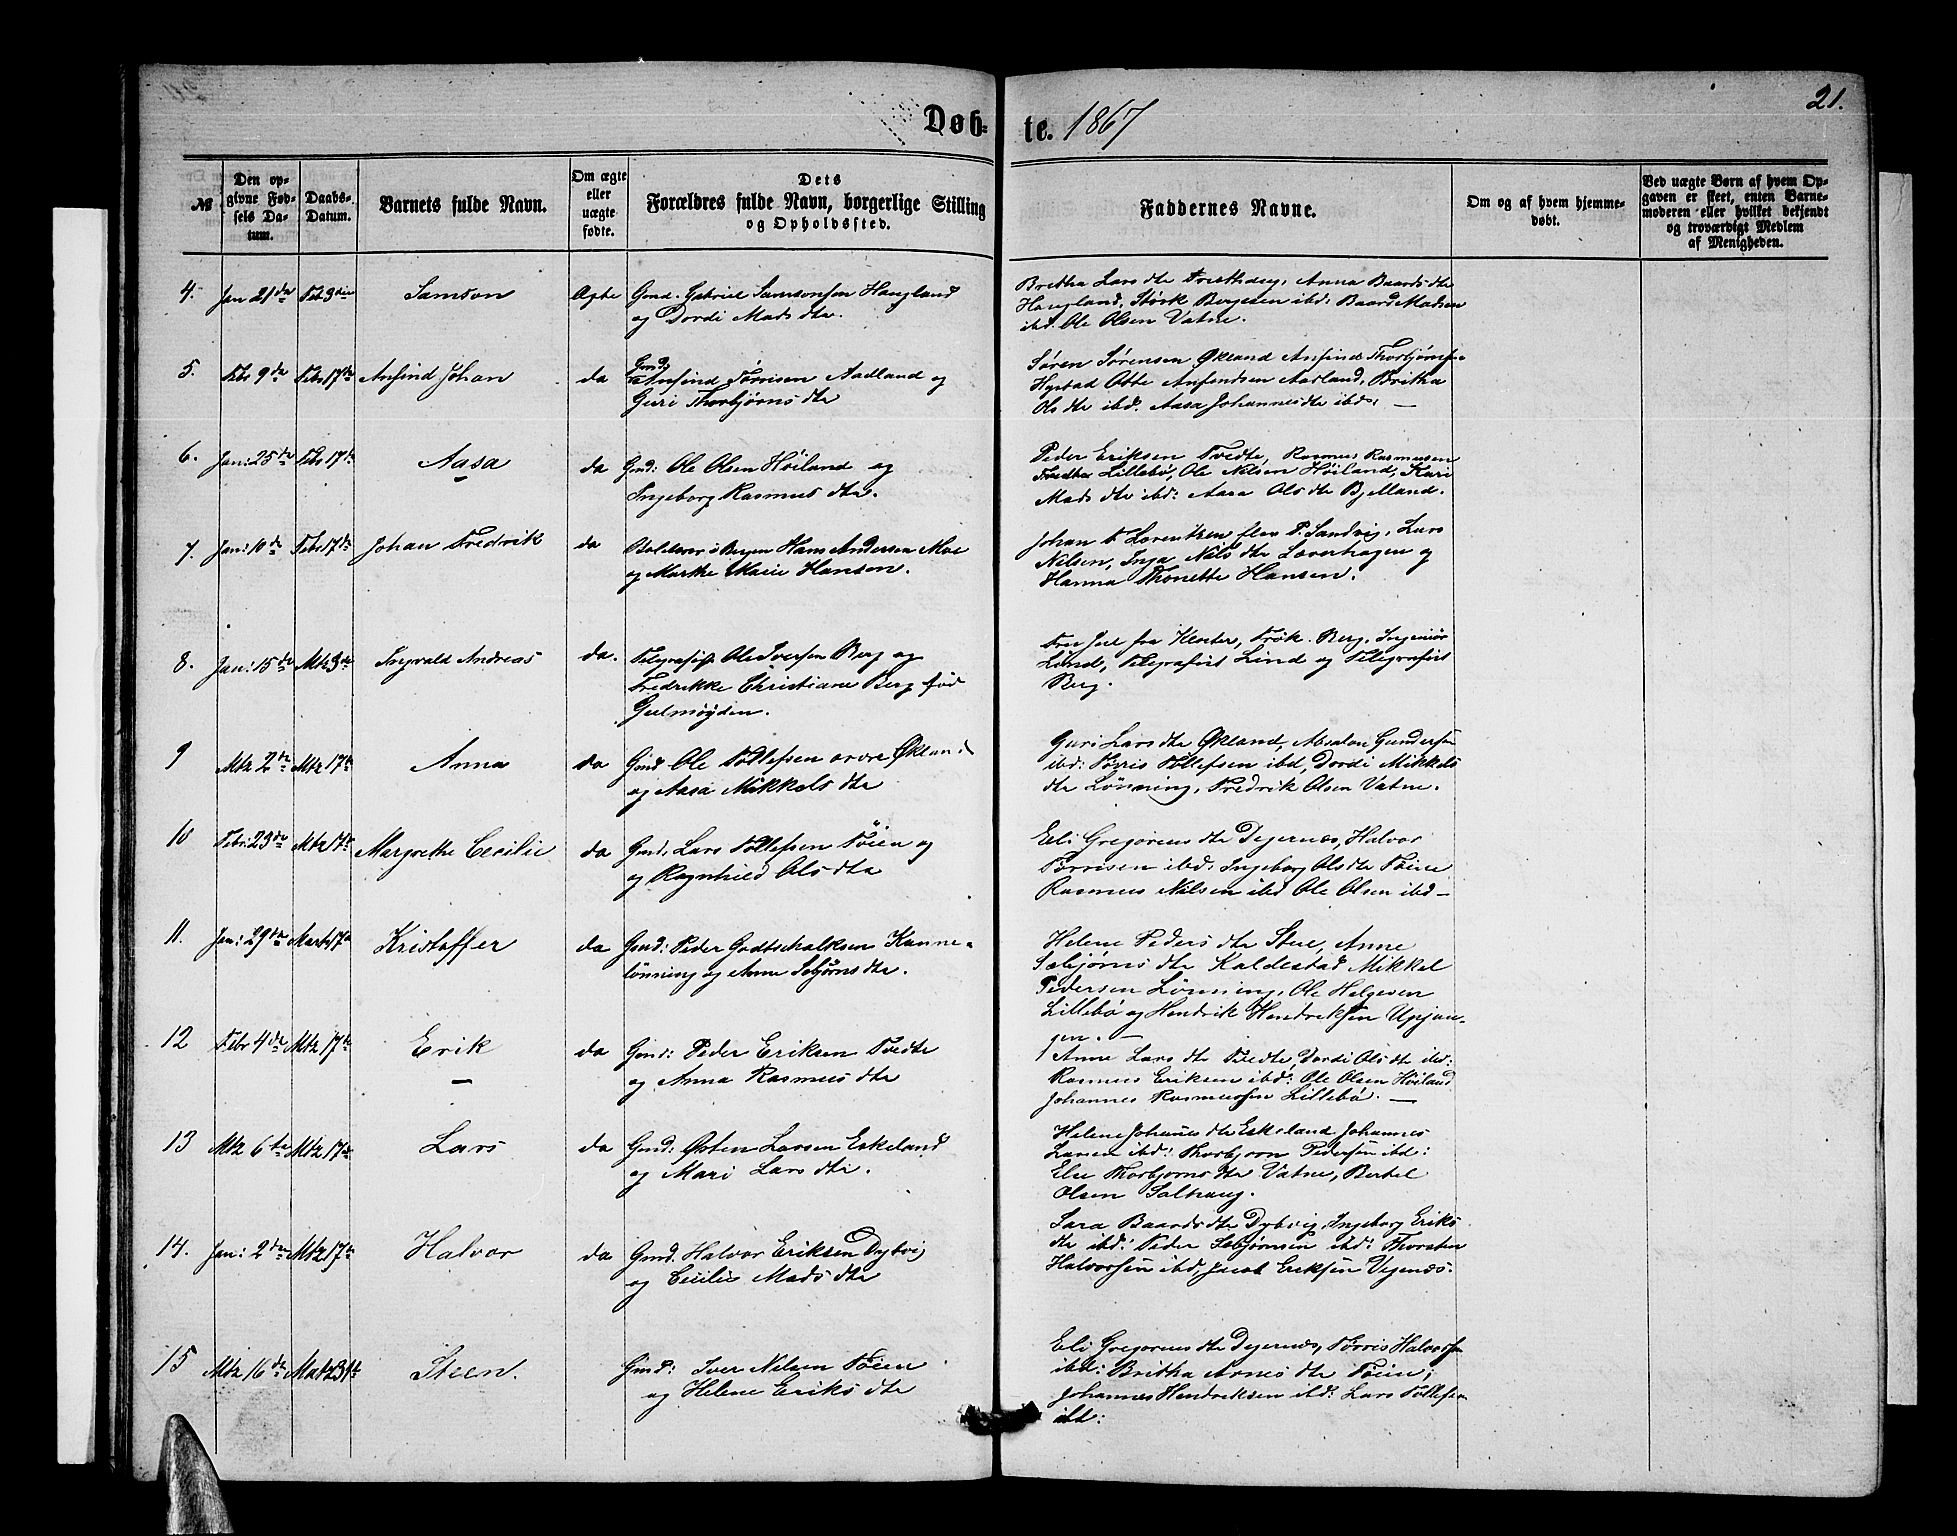 21.
Døb- te. 1867
№
Den op-
givne Fød-
sels Da-
tum.
Daabs-
Datum.
Barnets fulde Navn.
Om ægte
eller
uægte
fødte.
Dets
Forældres fulde Navn, borgerlige Stilling
og Opholdssted.
Faddernes Navne.
Om og af hvem hjemme-
døbt.
Ved uægte Børn af hvem Op-
gaven er skeet, enten Barne-
moderen eller hvilket bekjendt
og troværdigt Medlem
af Menigheden.
4. Jan 21de Feb 3die Samson Ægte Gmd. Gabriel Samsonsen Haugland
og Dordi Mads dtr.
Bretha Lars dtr Anna Baards dtr
Haugland, Størk Bergesen ibd: Baard Madsen
ibd. Ole Olsen Vatne.
5. Feb 9de Feb 17de Anfind Johan da Gmd
Anfind Tørrisen Aadland og
Guri Thorbjørns dtr
Søren Sørensen Økland Anfind Thorbjørns
Hystad Otte Anfindsen Aarland, Britha
Ols dtr ibd. Aasa Johannesdtr ibd: —
6. Jan: 25de Feb 17de Aasa da Gmd: Ole Olsen Høiland og
Ingeborg Rasmus dtr.
Peder Eriksen Tvedte, Rasmus Rasmussen
Lillebø, Ole Nilsen Høiland, Kari
Mads dtr ibd: Aasa Ols dtr Bjelland.
7. Jan: 10de Feb 17de Johan Fredrik da i Bergen Hans Andersen Moe
og Marthe Marie Hansen.
Johan F Lorentzen P. Sandvig, Lars
Nilsen, Inga Nils dtr Lervehagen og
Hanna Thonette Hansen.
8. Jan: 15de Mtz 3de Sigvald Andreas da. Telegrafist Ole Iversen Berg og
Fredrikke Christiane Berg fød
Gulmøyden.
Frøk. Berg, Ingeniør
Lund, Telegrafist Lind og Telegrafist
Berg.
9 Mtz 2de Mtz 17de Anna da Gmd Ole Tollefsen øvre Økland
og Aasa Mikkels dtr
Guri Lars dtr Økland, Absalon Gundersen
ibd: Tørris Tollefsen ibd, Dordi Mikkels
dtr Lønning, Fredrik Olsen Vatne.
10 Febr: 23de Mtz 17de Margrethe Cecilie da Gmd. Lars Tollefsen Tøien og
og Ragnhild Ols dtr
Eli Gregorius dtr Degernes, Halvor
Tørrisen ibd: Ingeborg Ols dtr Tøien
Rasmus Nilsen ibd Ole Olsen ibd —
11. Jan: 29de Marts 17de Kristoffer da Gmd: Peder Godtschalksen Kanne-
lønning og Anna Sebjørns dtr.
Helene Peders dtr Stue, Anne
Sebjørns dtr Kaldestad Mikkel
Pedersen Lønning, Ole Helgesen
Lillebø og Hendrik Hendriksen Upjan-
gen. —
12 Febr 4de Mtz 17de Erik da Gmd: Peder Eriksen Tvedte
og Anna Rasmus dtr
Anne Lars dtr Tvedte, Dordi Ols dtr ibd:
Rasmus Eriksen ibd: Ole Olsen Høiland
Johannes Rasmussen Lillebø. —
13 Mtz 6te Mtz 17de Lars da Gmd: Østen Larsen Eskeland
og Mari Lars dtr.
Helene Johannes dtr Eskeland Johannes
Larsen ibd: Thorbjørn Pedersen ibd:
Else Thorbjørns dtr Vatne, Bertel
Olsen Saltvaag.
14. Jan: 2de Mtz 17de Halvor da Gmd. Halvor Eriksen Dybvig
og Cecilie Mads dtr
Sara Baards dtr Dybvig Ingeborg Eriks
dtr ibd: Peder Sebjørnsen ibd: Thorsten
Halvorsen ibd, Jacob Eriksen Vejenæs.
15 Mtz 16de Mtz 31te Steen. Gmd: Iver Nilsen Tøien
og Helene Eriks dtr
Eli Gregorius dtr Degernes, Tørris Halvorsen
ibd: Britha Arnes dtr Tøien,
Johannes Hendriksen ibd: Lars Tollefsen
ibd: